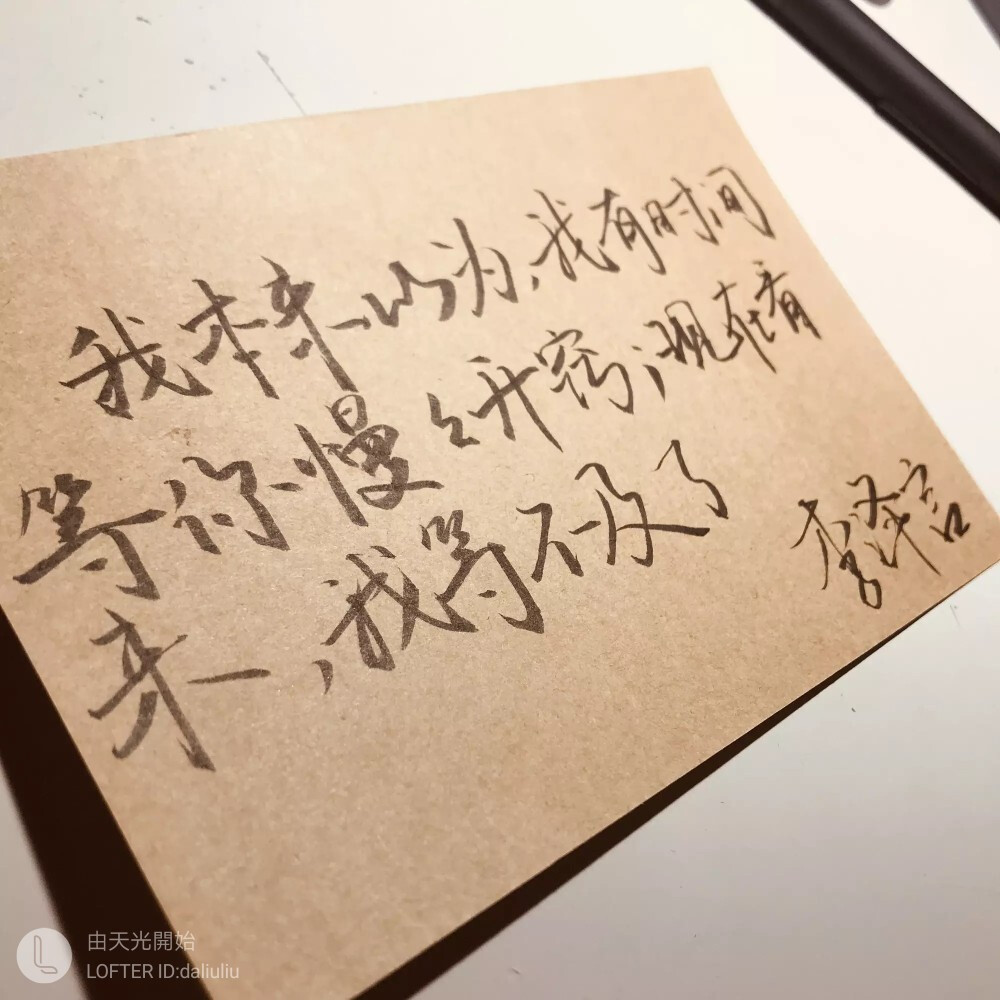 我本来以为，我有时间
等你慢慢开窍；现在看
来，我等不及了
李泽言
由天光開始
LOFTER ID:daliuliu